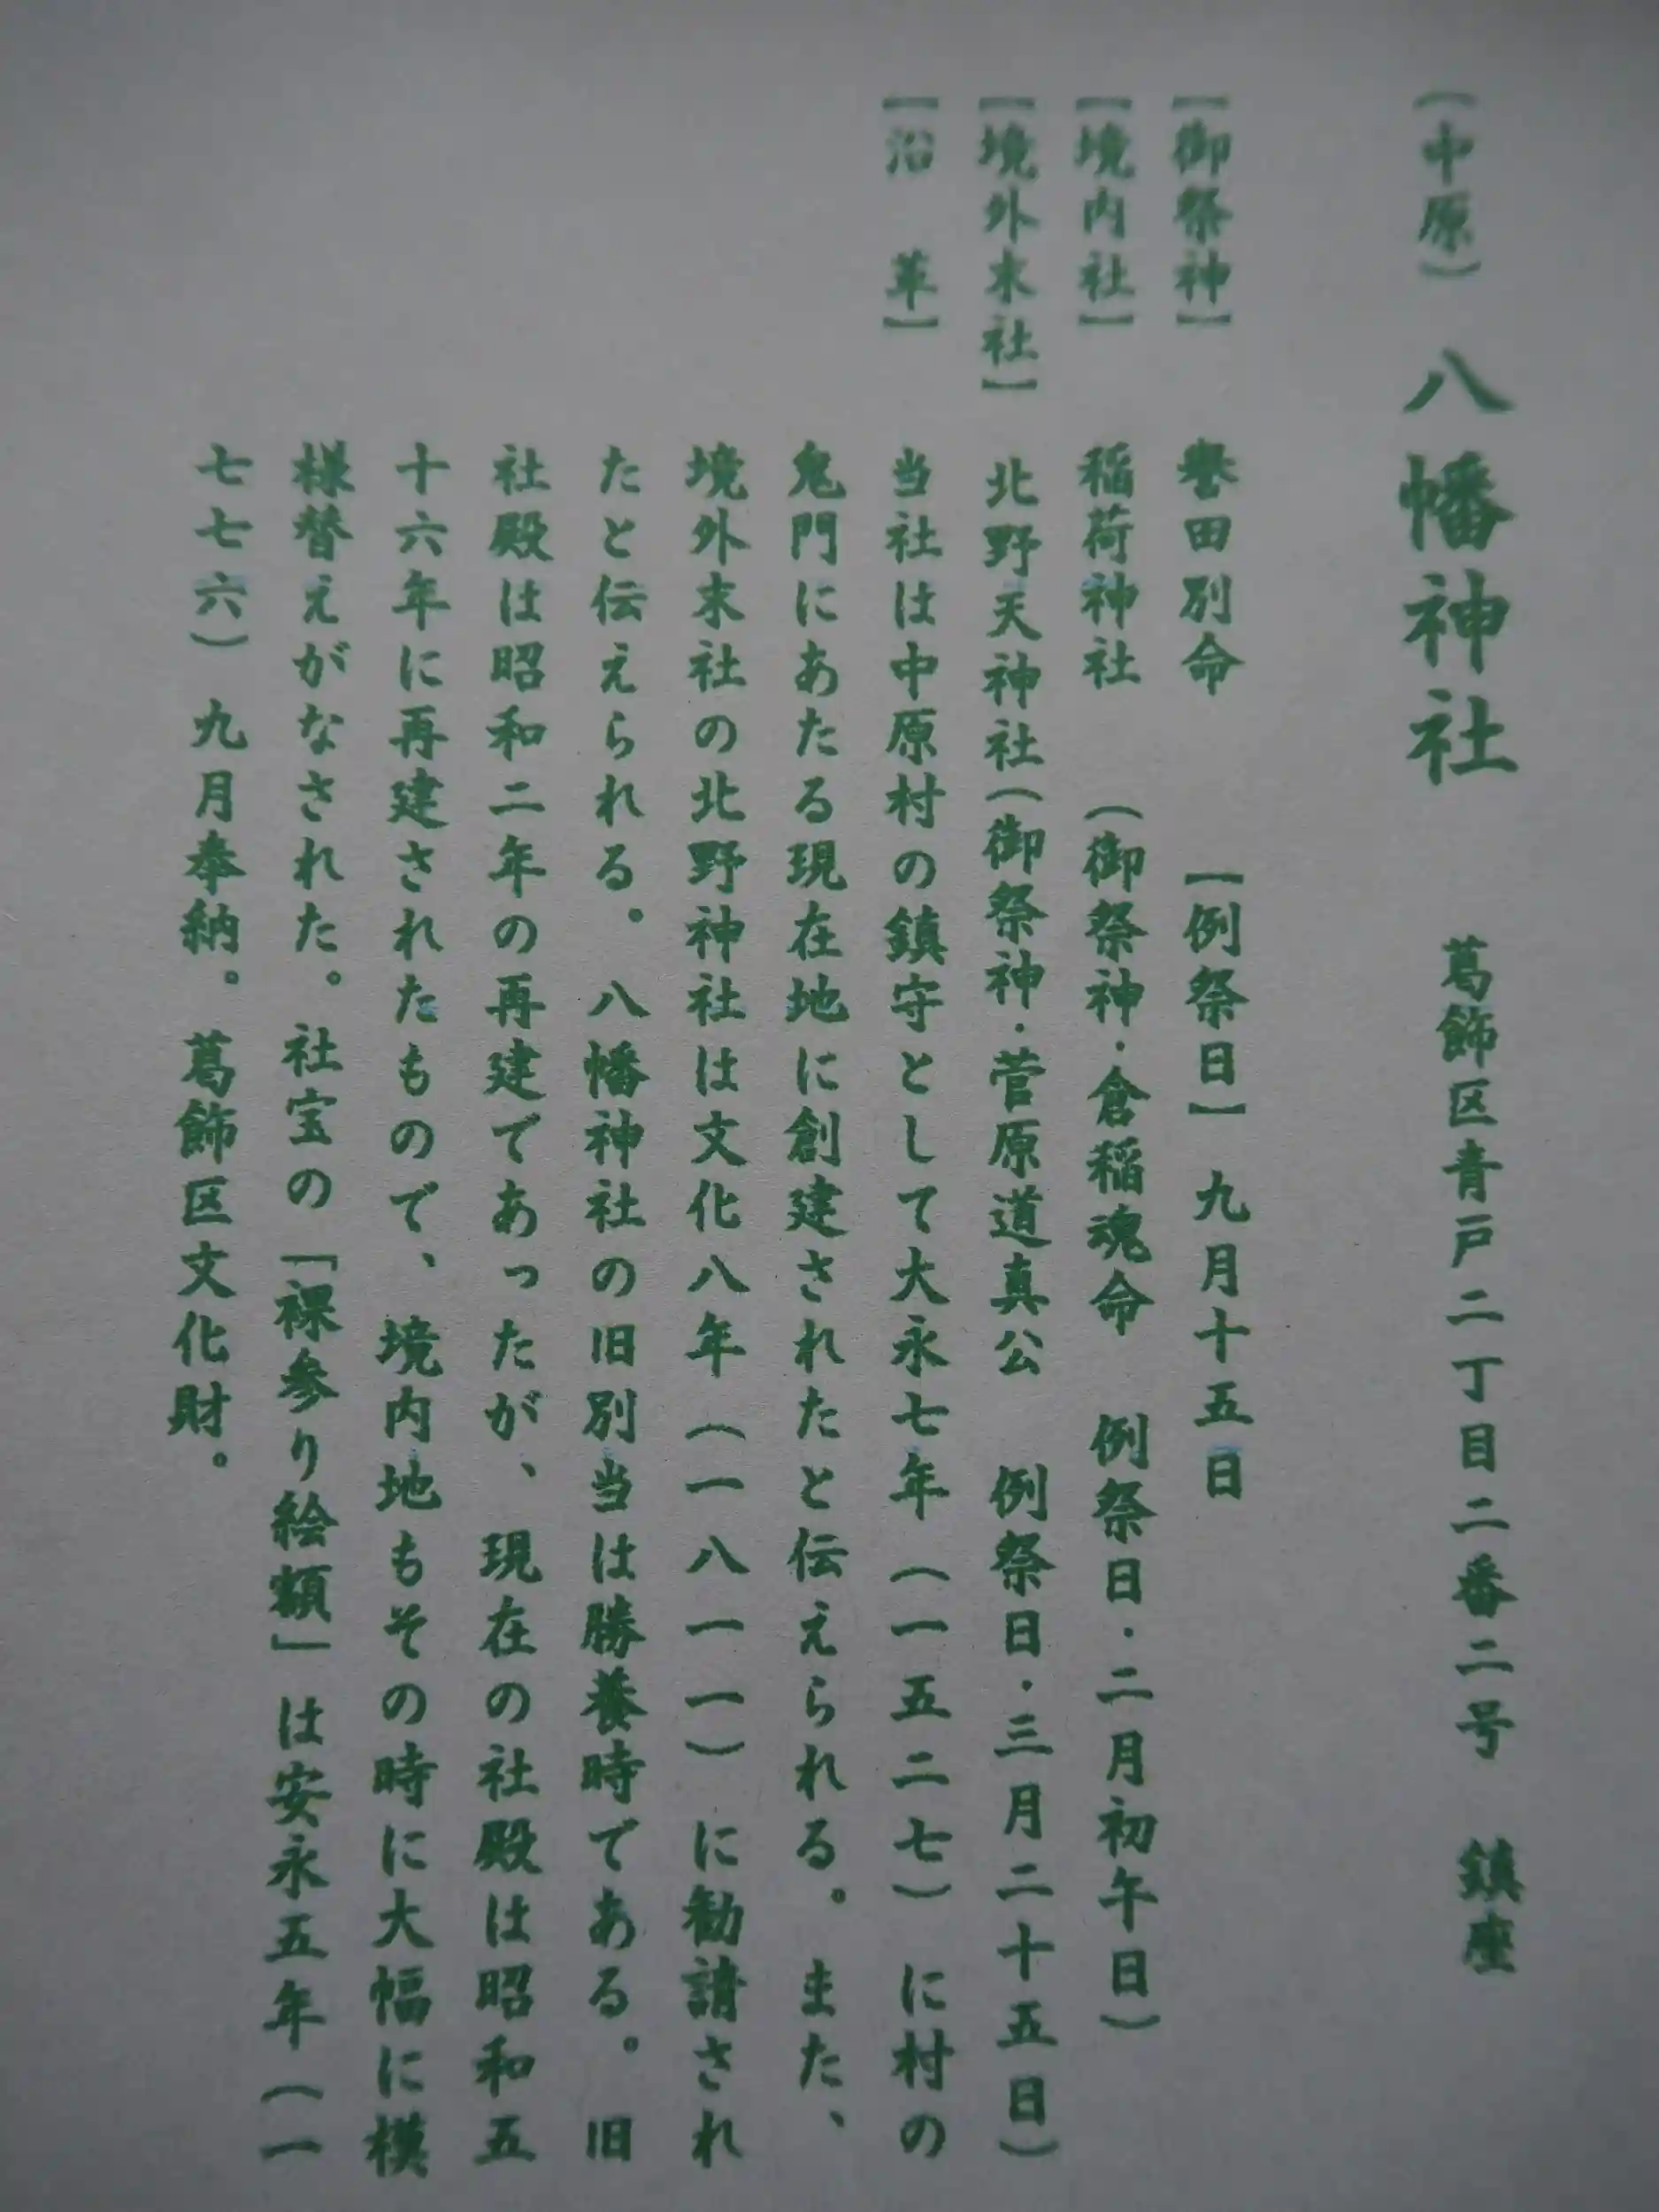 （中原）八幡神社　葛飾区青戸二丁目二番二号　鎮座
【御祭神】　誉田別命　【例祭日】九月十五日
【境内社】　稲荷神社　（御祭神・倉稲魂命　例祭日・二月初午日）
【境外末社】　北野天神社（御祭神・菅原道真公　例祭日・三月二十五日）
【沿　革】　当社は中原村の鎮守として大永七年（一五二七）に村の
鬼門にあたる現在地に創建されたと伝えられる。また、
境外末社の北野神社は文化八年（一八一一）に勧請され
たと伝えられる。八幡神社の旧別当は勝養時である。旧
社殿は昭和二年の再建であったが、現在の社殿は昭和五
十六年に再建されたもので、境内地もその時に大幅に模
様替えがなされた。社宝の「裸参り絵額」は安永五年（一
七七六）九月奉納。葛飾区文化財。